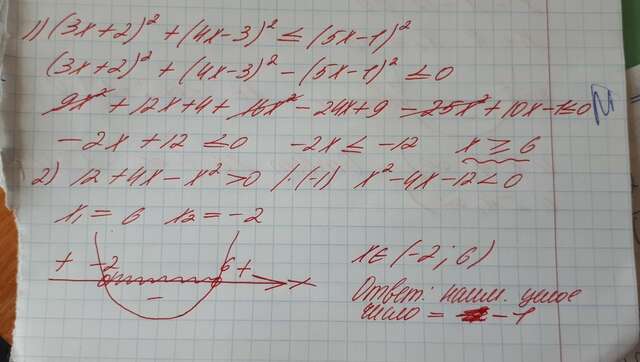 1) (3x+2)² + (4x-3)² ≤ (5x-1)²
(3x+2)² + (4x-3)² - (5x-1)² ≤ 0
9x² + 12x+4 + 16x² - 24x+9 - 25x² + 10x-1≤0
-2x+12 ≤0 -2x ≤ -12 x ≥ 6
2) 12+4x-x²>0 /·(-1) x²-4x-12<0
x₁ = 6 x₂ = -2
+ -2 - 6 + x
x∈ (-2; 6)
Ответ: наим. целое
число = -1